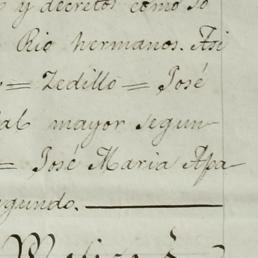 y decretos como so
Rio hermanos. Asi
= Zedillo = José
al mayor segun-
= José Maria Apa-
egundo.